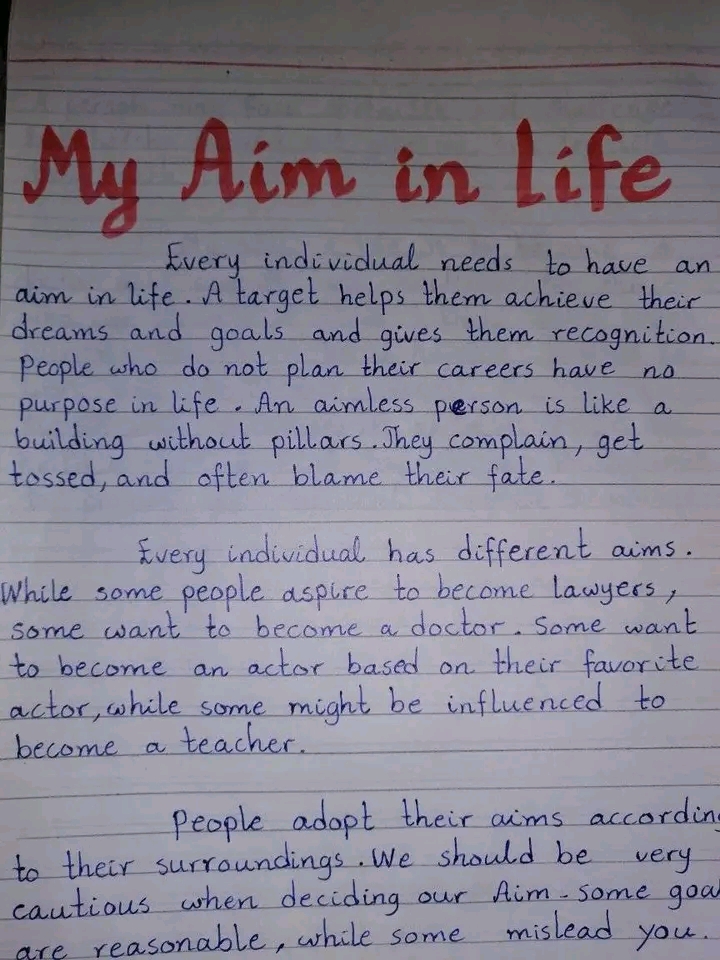 My Aim in life
Every individual needs to have an
aim in life. A target helps them achieve their
dreams and goals and gives them recognition.
People who do not plan their careers have no
purpose in life. An aimless person is like a
building without pillars. They complain, get
tossed, and often blame their fate.
Every individual has different aims.
While some people aspire to become lawyers,
some want to become a doctor. Some want
to become an actor based on their favorite
actor, while some might be influenced to
become a teacher.
People adopt their aims according
to their surroundings. We should be very
cautious when deciding our Aim. some goa
are reasonable, while some mislead you.